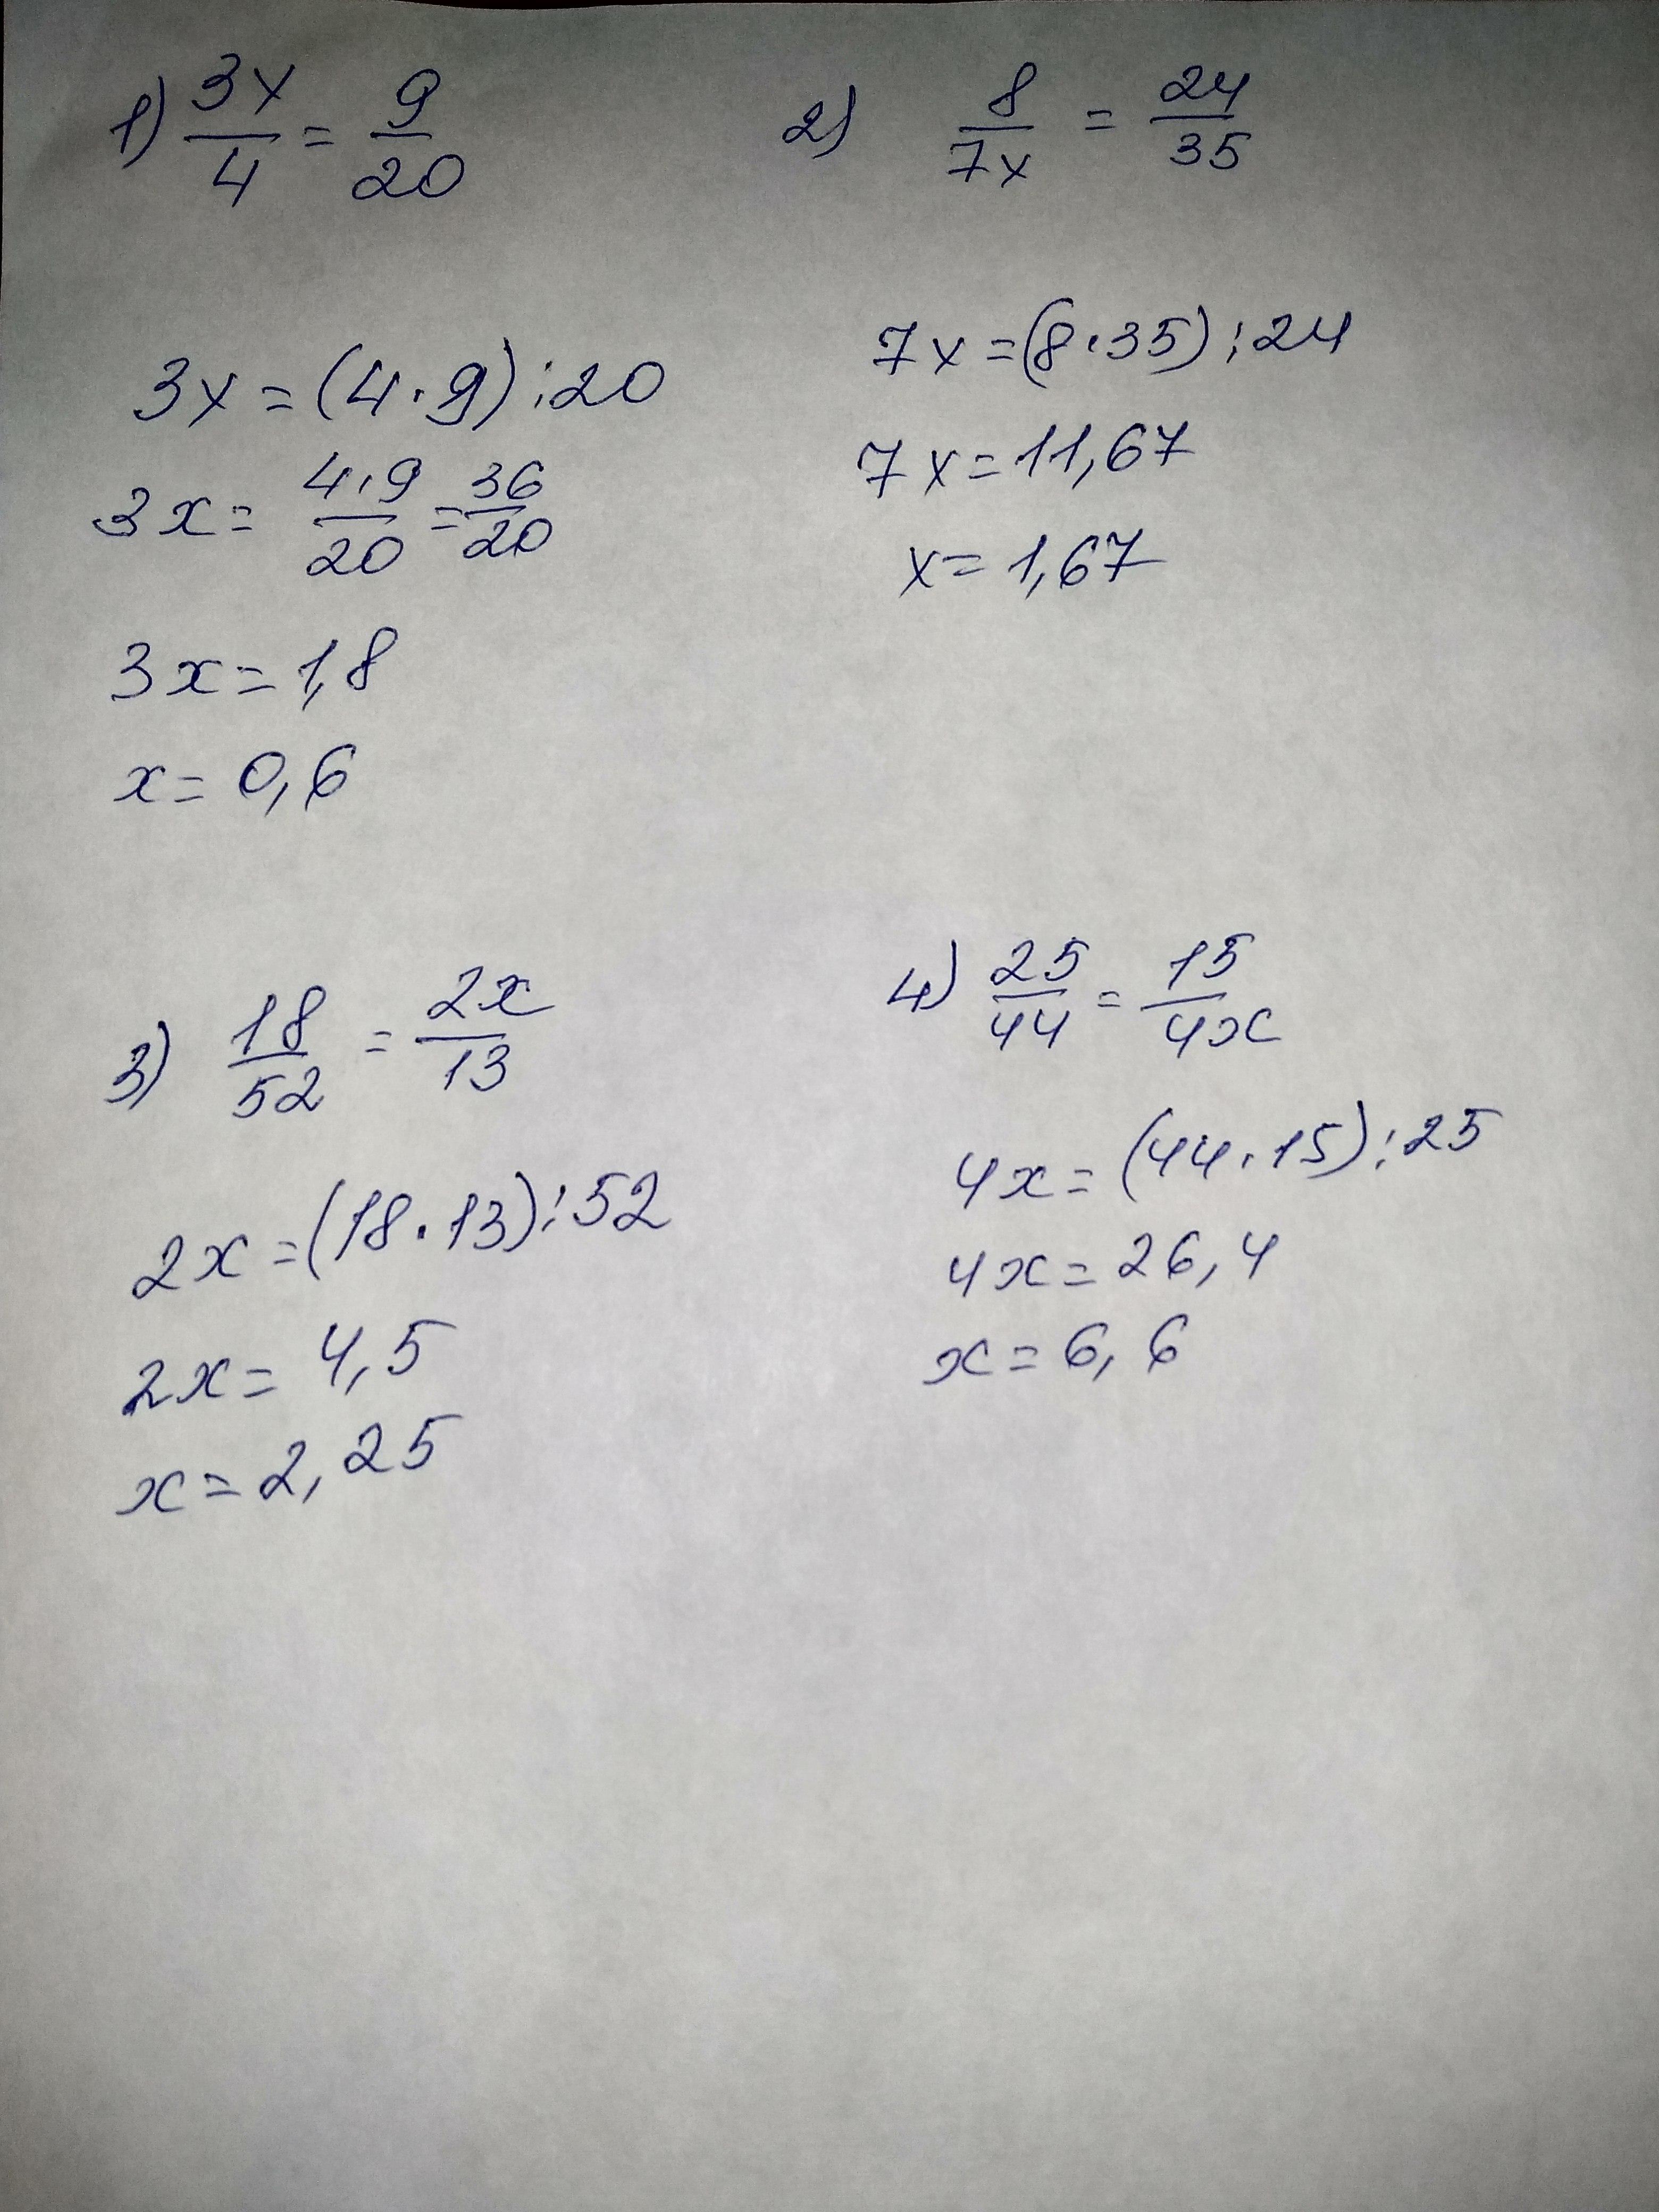 1) 3x/4 = 9/20
3x = (4·9):20
3x = 4·9/20 = 36/20
3x = 1,8
x = 0,6
2) 8/7x = 24/35
7x = (8·35):24
7x = 11,67
x = 1,67
3) 18/52 = 2x/13
2x = (18·13):52
2x = 4,5
x = 2,25
4) 25/44 = 15/4x
4x = (44·15):25
4x = 26,4
x = 6,6